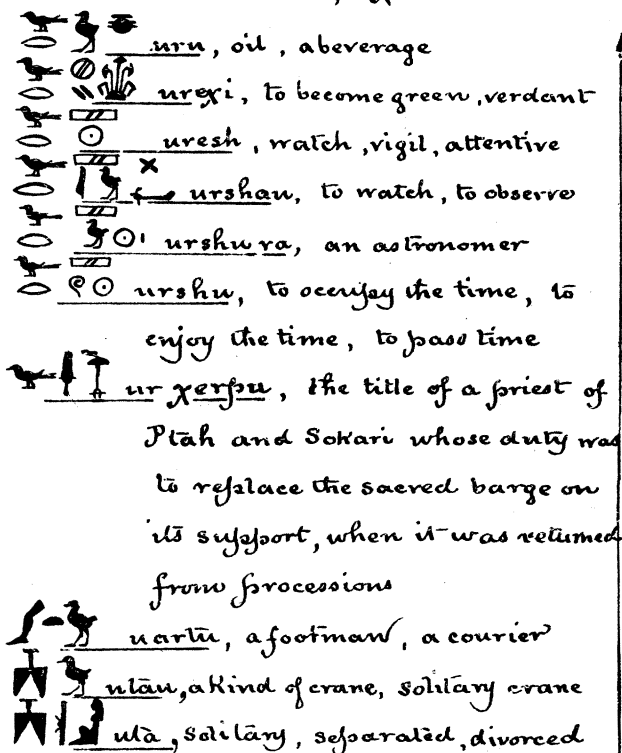 uru, oil, a beverage
urexi, to become green, verdant
uresh, watch, vigil, attentive
urshau, to watch, to observe
urshu ra, an astronomer
urshu, to occupy the time, to
enjoy the time, to pass time
ur χerpu, the title of a priest of
Ptah and Sokari whose duty was
to replace the sacred barge on
its support, when it was returned
from processions
uartu, a footman, a courier
utau, a kind of crane, solitary crane
utà, solitary, separated, divorced